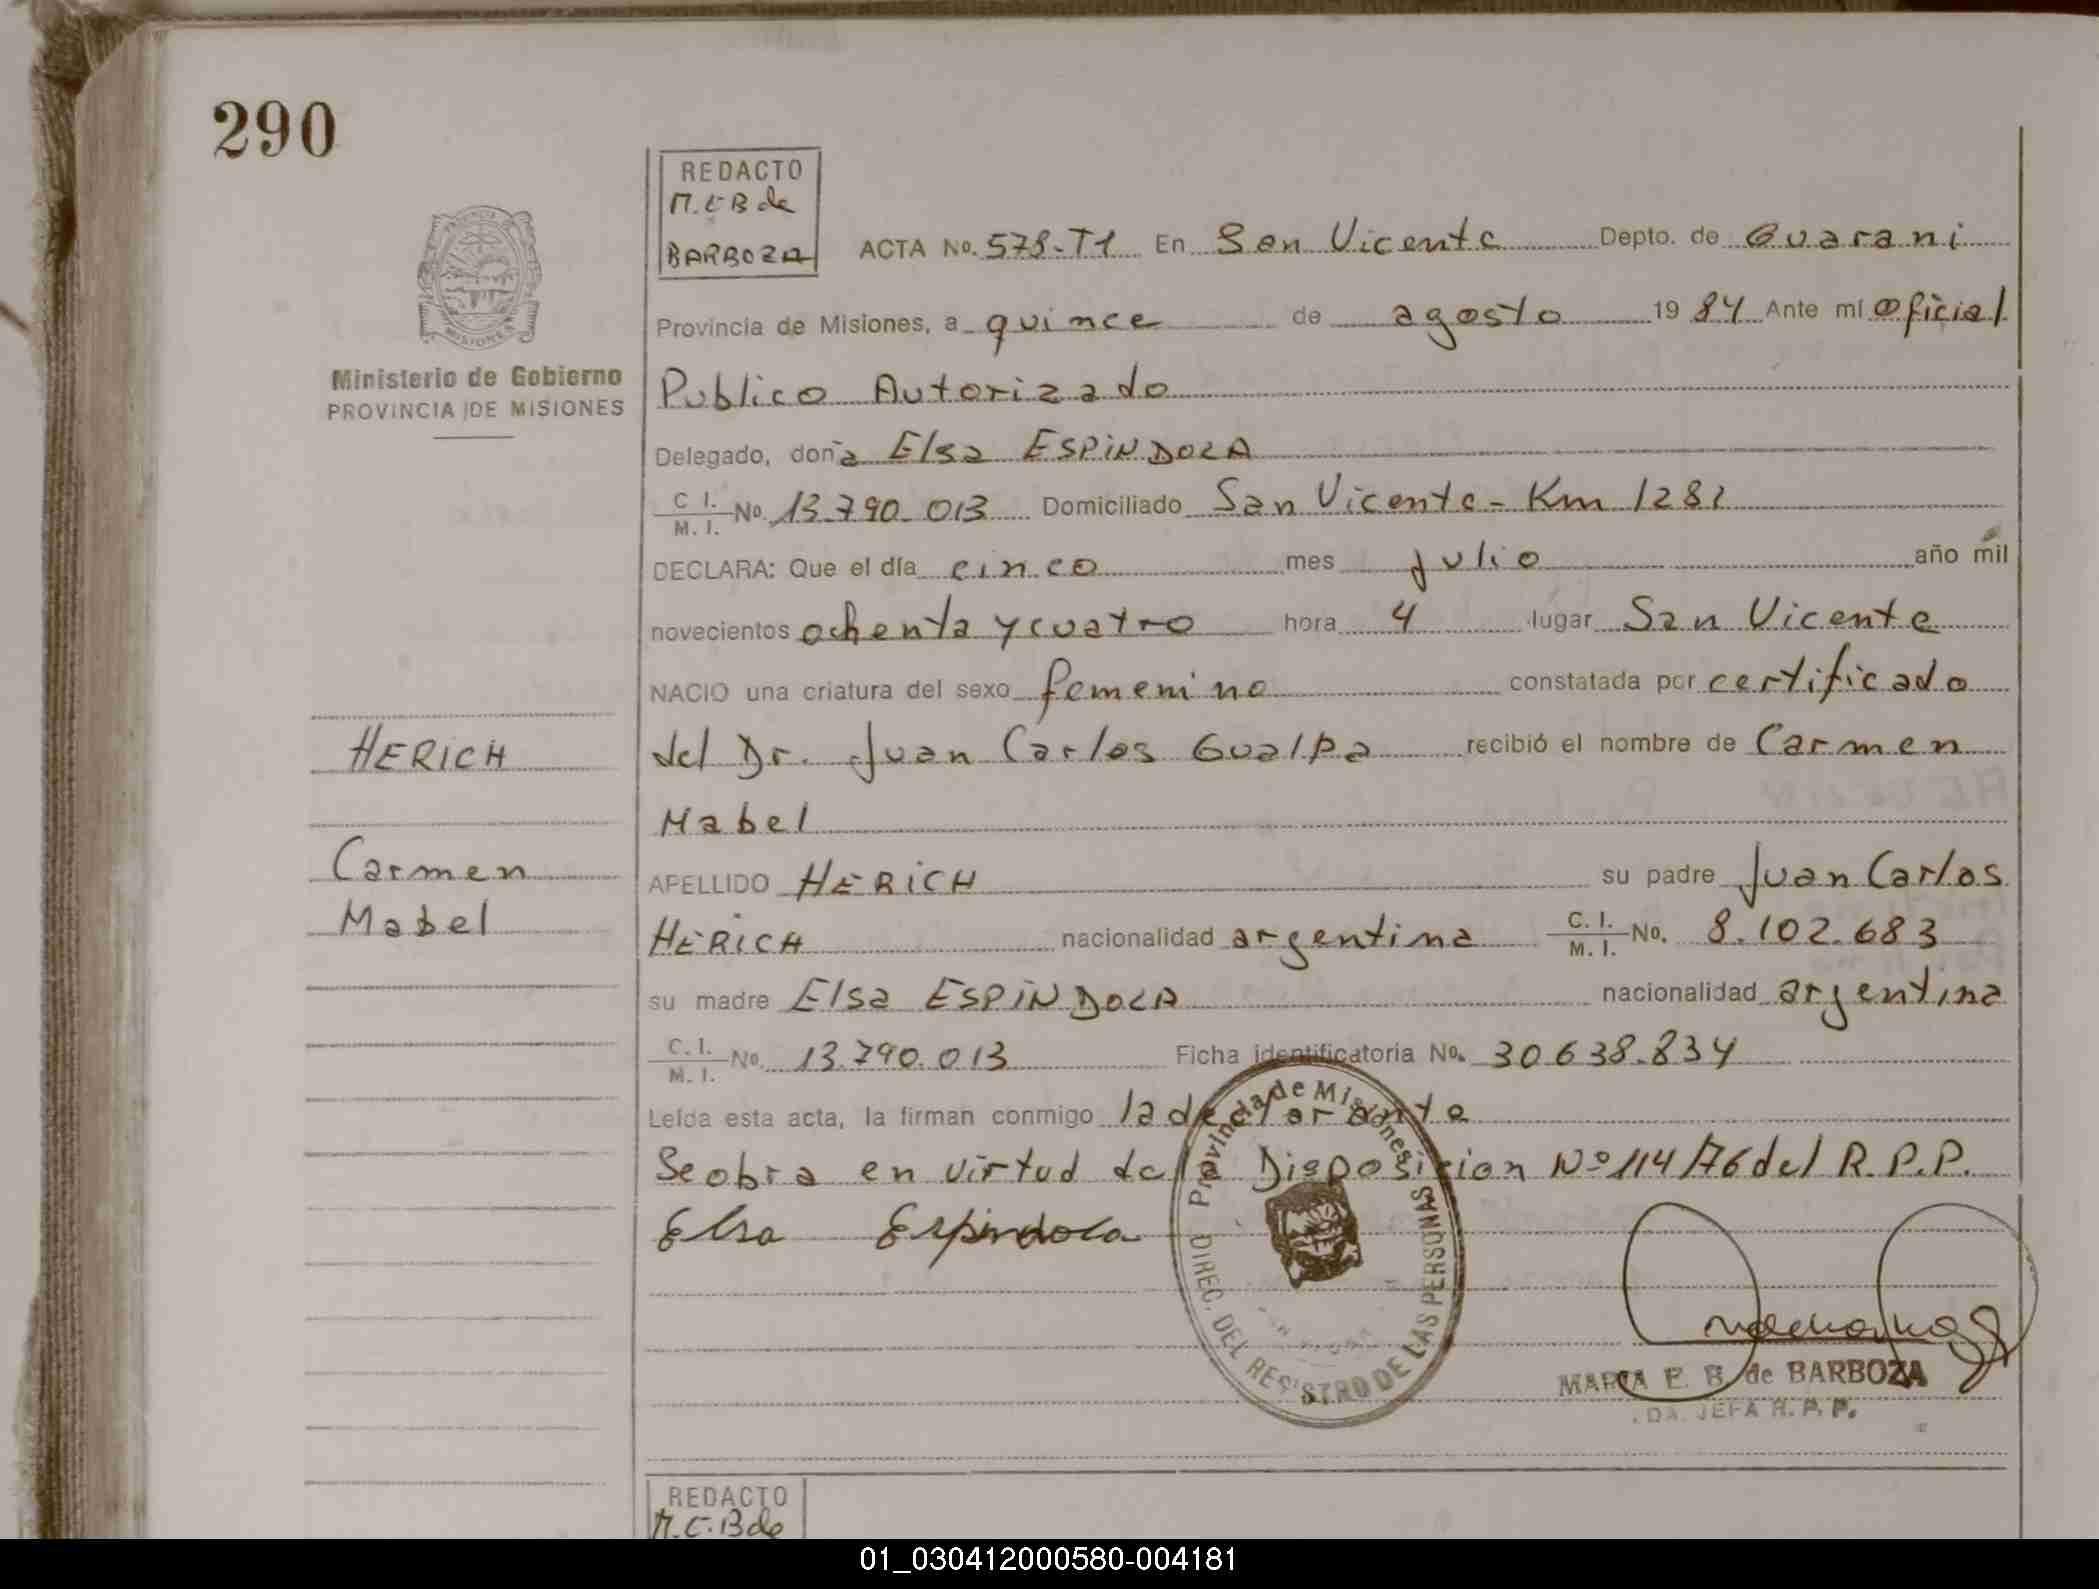 290
REDACTO
M. E B de
BARBOZA
ACTA No. 578-T1 En San Vicente Depto. de Guarani
Provincia de Misiones, a quince de agosto 19 84 Ante mí oficial
Ministerio de Gobierno
PROVINCIA DE MISIONES
Publico Autorizado
Delegado, doña Elsa ESPINDOLA
C I. / M. I. No. 13.790.013 Domiciliado San Vicente - Km 1282
DECLARA: Que el día cinco mes julio año mil
novecientos ochenta y cuatro hora 4 lugar San Vicente
NACIO una criatura del sexo femenino constatada por certificado
HERICH
del Dr. Juan Carlos Gualpa recibió el nombre de Carmen
Mabel
Carmen
Mabel
APELLIDO HERICH su padre Juan Carlos
HERICH nacionalidad argentina C. I. / M. I. No. 8.102.683
su madre Elsa ESPINDOLA nacionalidad argentina
C. I. / M. I. No. 13.790.013 Ficha identificatoria No. 30638.834
Leída esta acta, la firman conmigo la declarante
Se obra en virtud de la Disposicion Nº 114/76 del R. P. P.
Elsa Espindola
Provincia de Misiones
DIREC. DEL REGISTRO DE LAS PERSONAS
MARIA E. B. de BARBOZA
JEFA R. P. P.
REDACTO
M. E. B de
01_030412000580-004181